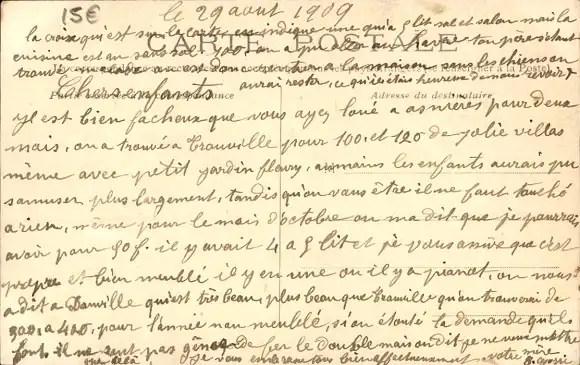 15€
le 29 août 1909
la croix qu'est sur la carte vous indique une qu'a 5 lit sal et salon mais la
cuisine est au sous sol 700f on a pu
CARTE POSTALE
trouvé on est donc rentré à la maison sans les chiens on
aurai rester, ce qu'ils était heureux de nous revoir
Chers enfants
Adresse du destinataire
Il est bien facheux que vous ayez loué a asnieres pour deux
mois, on a trouvé a Trouville pour 100 et 120 de jolie villas
même avec petit jardin fleury, au moins les enfants aurais pu
samuser plus largement, tandis qu'on vous être il ne faut touché
a rien, même pour le mois d'octobre on ma dit que je pourrais
avoir pour 50 f. il y avait 4 a 5 lit et je vous assure que c'est
propre et bien meublé il y en une ou il y a pianot, on nous
a dit a Danville qu'est très beau, plus beau que Trouville qu'on trouverai de
300 a 400, pour l'année non meublé, si on étouté la demande qu'ils
font il ne sont pas de fer le double mais on dit je ne veux mettre
que celà je vous embrasse tous bien affectueusement votre mère